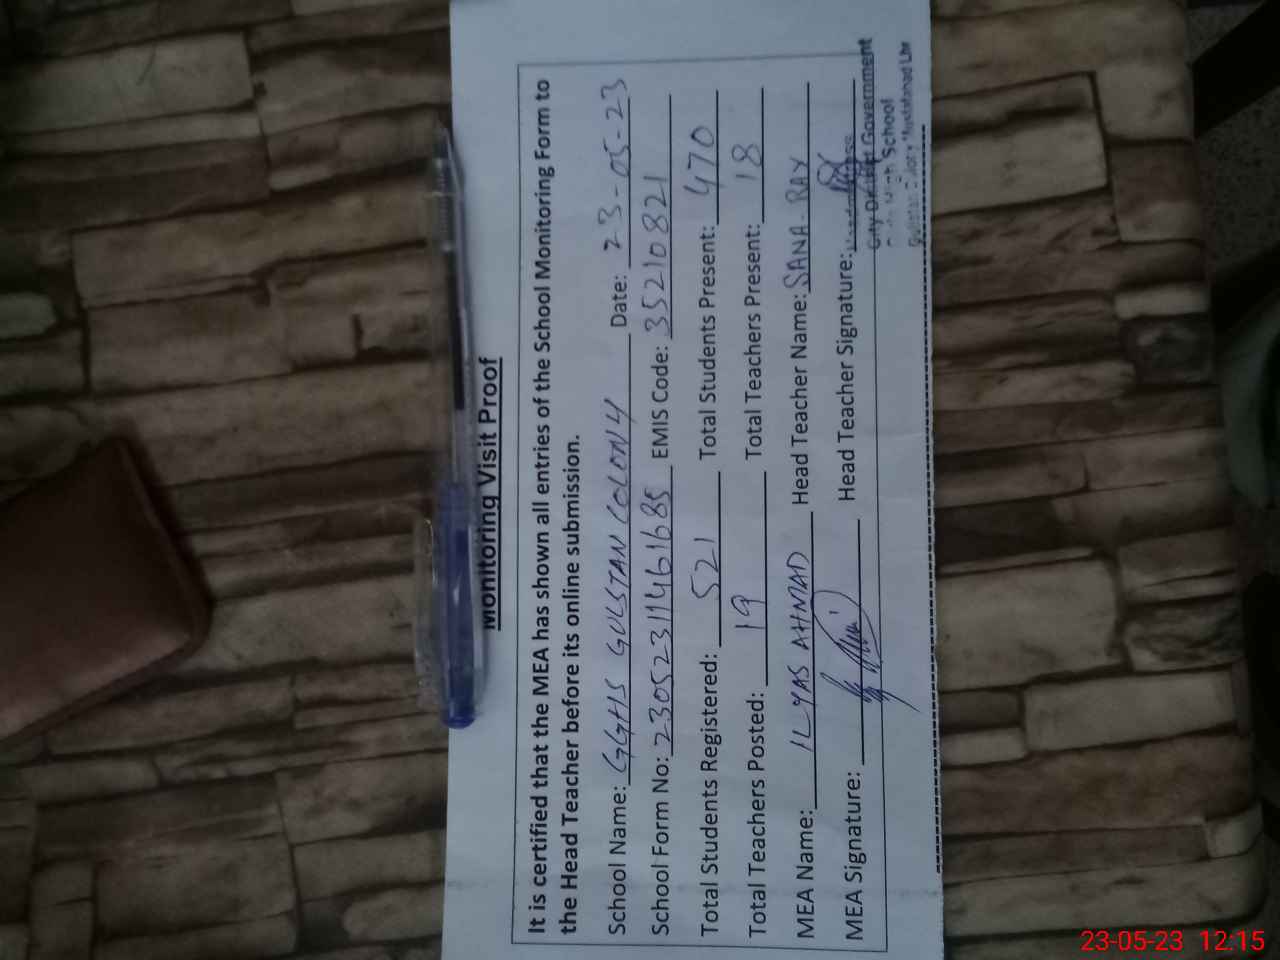 Monitoring Visit Proof
It is certified that the MEA has shown all entries of the School Monitoring Form to
the Head Teacher before its online submission.
School Name: GGHS GULSTAN COLONY Date: 23-05-23
School Form No: 23052311461685 EMIS Code: 35210821
Total Students Registered: 521 Total Students Present: 470
Total Teachers Posted: 19 Total Teachers Present: 18
MEA Name: ILYAS AHMAD Head Teacher Name: SANA-RAY
MEA Signature: Head Teacher Signature:
City District Government
High School
23-05-23 12:15